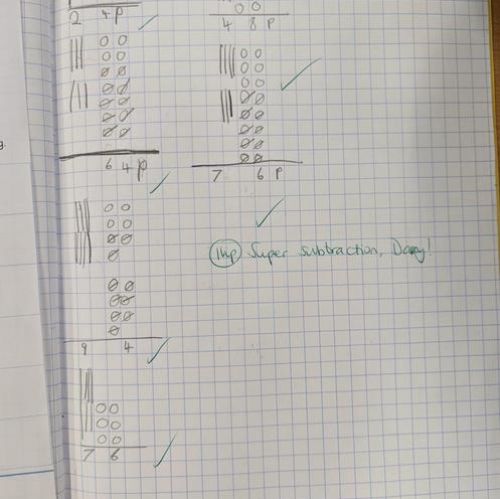 2 4p
4 8 p
6 4 p
7 6 p
1hp Super subtraction,
9 4
7 6